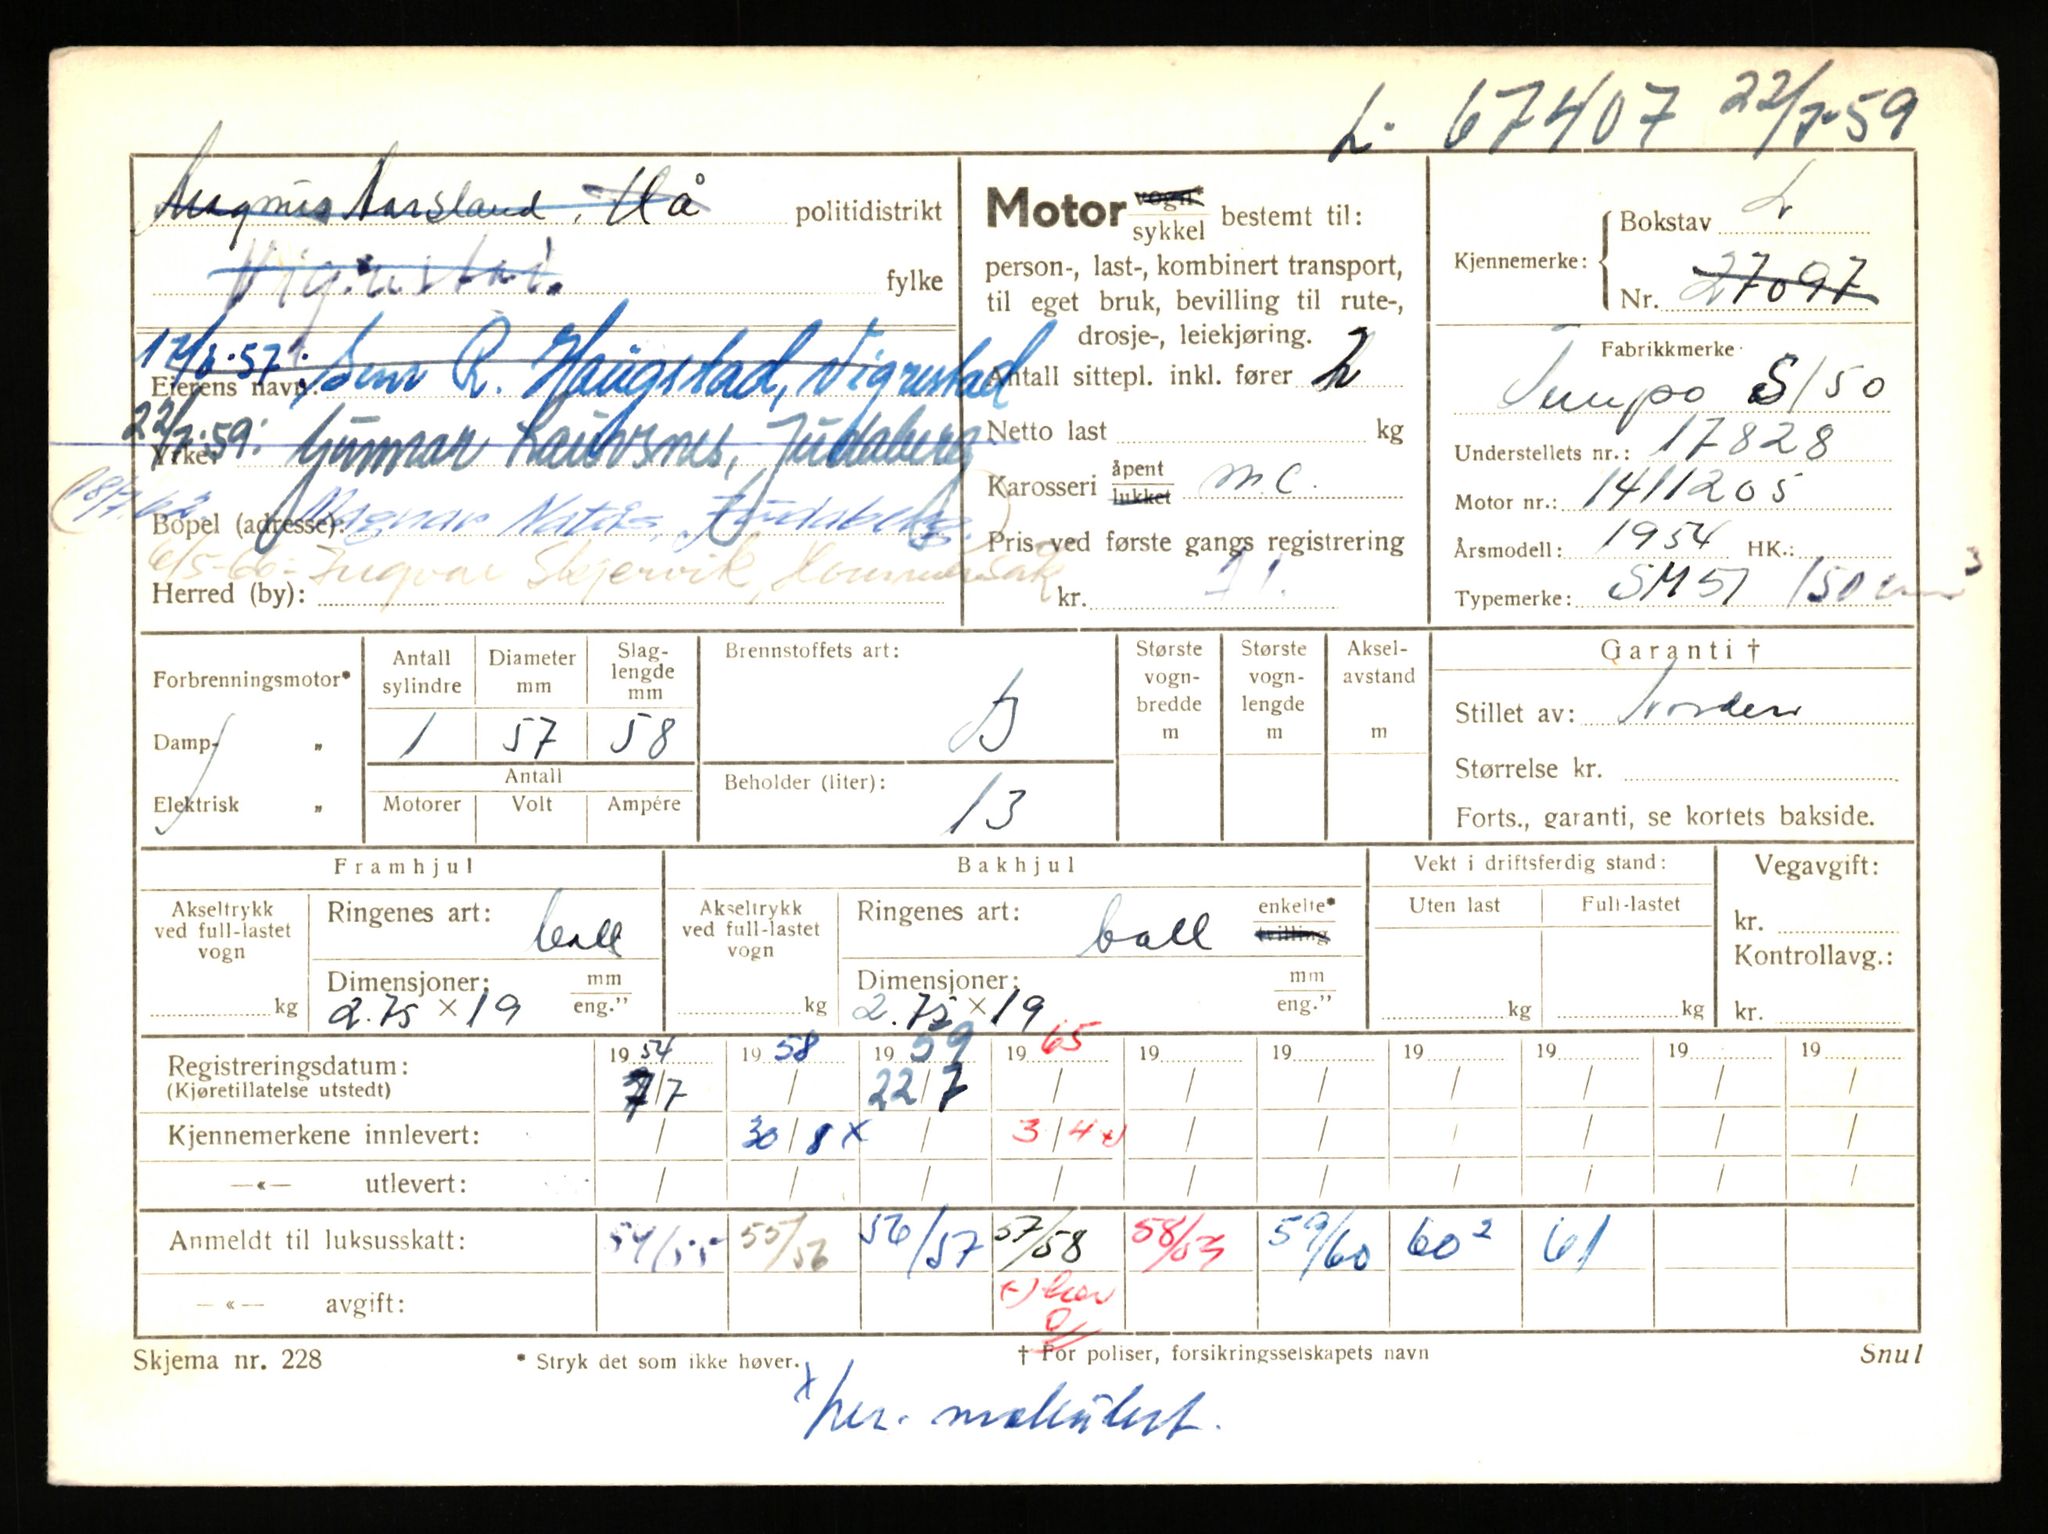 L. 67407 22/7-59
Magnus Aarsland, Hå politidistrikt
Vigrestad. fylke
17/8-57: Sem R. Haugstad, Vigrestad
Eierens navn:
22/7-59: Gunnar Lauvsnes, Judaberg
Yrke:
18/7-62 Magnar Judaberg.
Bopel (adresse):
6/5-66= Ingvar Skjervik, Hommersåk
Herred (by):
Motor vogn* sykkel bestemt til:
person-, last-, kombinert transport,
til eget bruk, bevilling til rute-,
drosje-, leiekjøring.
Antall sittepl. inkl. fører 2
Netto last kg
Karosseri åpent lukket m.c.
Pris ved første gangs registrering
kr.
Kjennemerke: Bokstav L
Nr. 27097
Fabrikkmerke
Tempo S/50
Understellets nr.: 17828
Motor nr.: 1411205
Årsmodell: 1954 HK.:
Typemerke: SM51 150 cm3
Forbrenningsmotor*
Damp- „
Elektrisk „
Antall sylindre Diameter mm Slag-lengde mm
1 57 58
Antall
Motorer Volt Ampére
Brennstoffets art:
B
Beholder (liter):
13
Største vogn-bredde m Største vogn-lengde m Aksel-avstand m
Garanti †
Stillet av: Norden
Størrelse kr.
Forts., garanti, se kortets bakside.
Framhjul
Akseltrykk ved full-lastet vogn kg
Ringenes art: ball
Dimensjoner: mm eng."
2.75 × 19
Bakhjul
Akseltrykk ved full-lastet vogn kg
Ringenes art: ball enkelte* tvilling
Dimensjoner: mm eng."
2.75 × 19
Vekt i driftsferdig stand:
Uten last Full-lastet
kg kg
Vegavgift:
kr.
Kontrollavg.:
kr.
Registreringsdatum: 19 54 19 58 19 59 19 65 19 19 19 19 19 19
(Kjøretillatelse utstedt) 7/7 / 22/7 / / / / / / /
Kjennemerkene innlevert: / 30/8 x / 3/4 / / / / / /
—«— utlevert: / / / / / / / / / /
Anmeldt til luksusskatt: 54/55 55/56 56/57 57/58 58/59 59/60 60² 61
—«— avgift:
Skjema nr. 228 * Stryk det som ikke høver. † For poliser, forsikringsselskapets navn Snul
x ler. makulert.